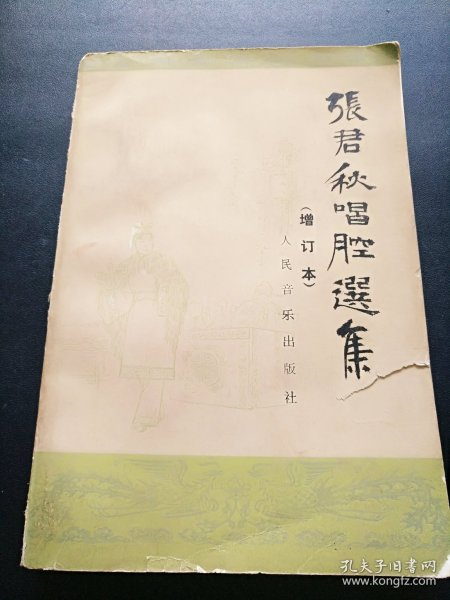 張君秋唱腔選集
(增订本)
人民音乐出版社
孔夫子旧书网
www.kongfz.com